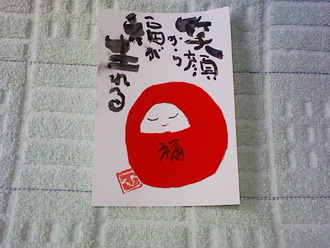 笑顔
から
福が
生れる
福